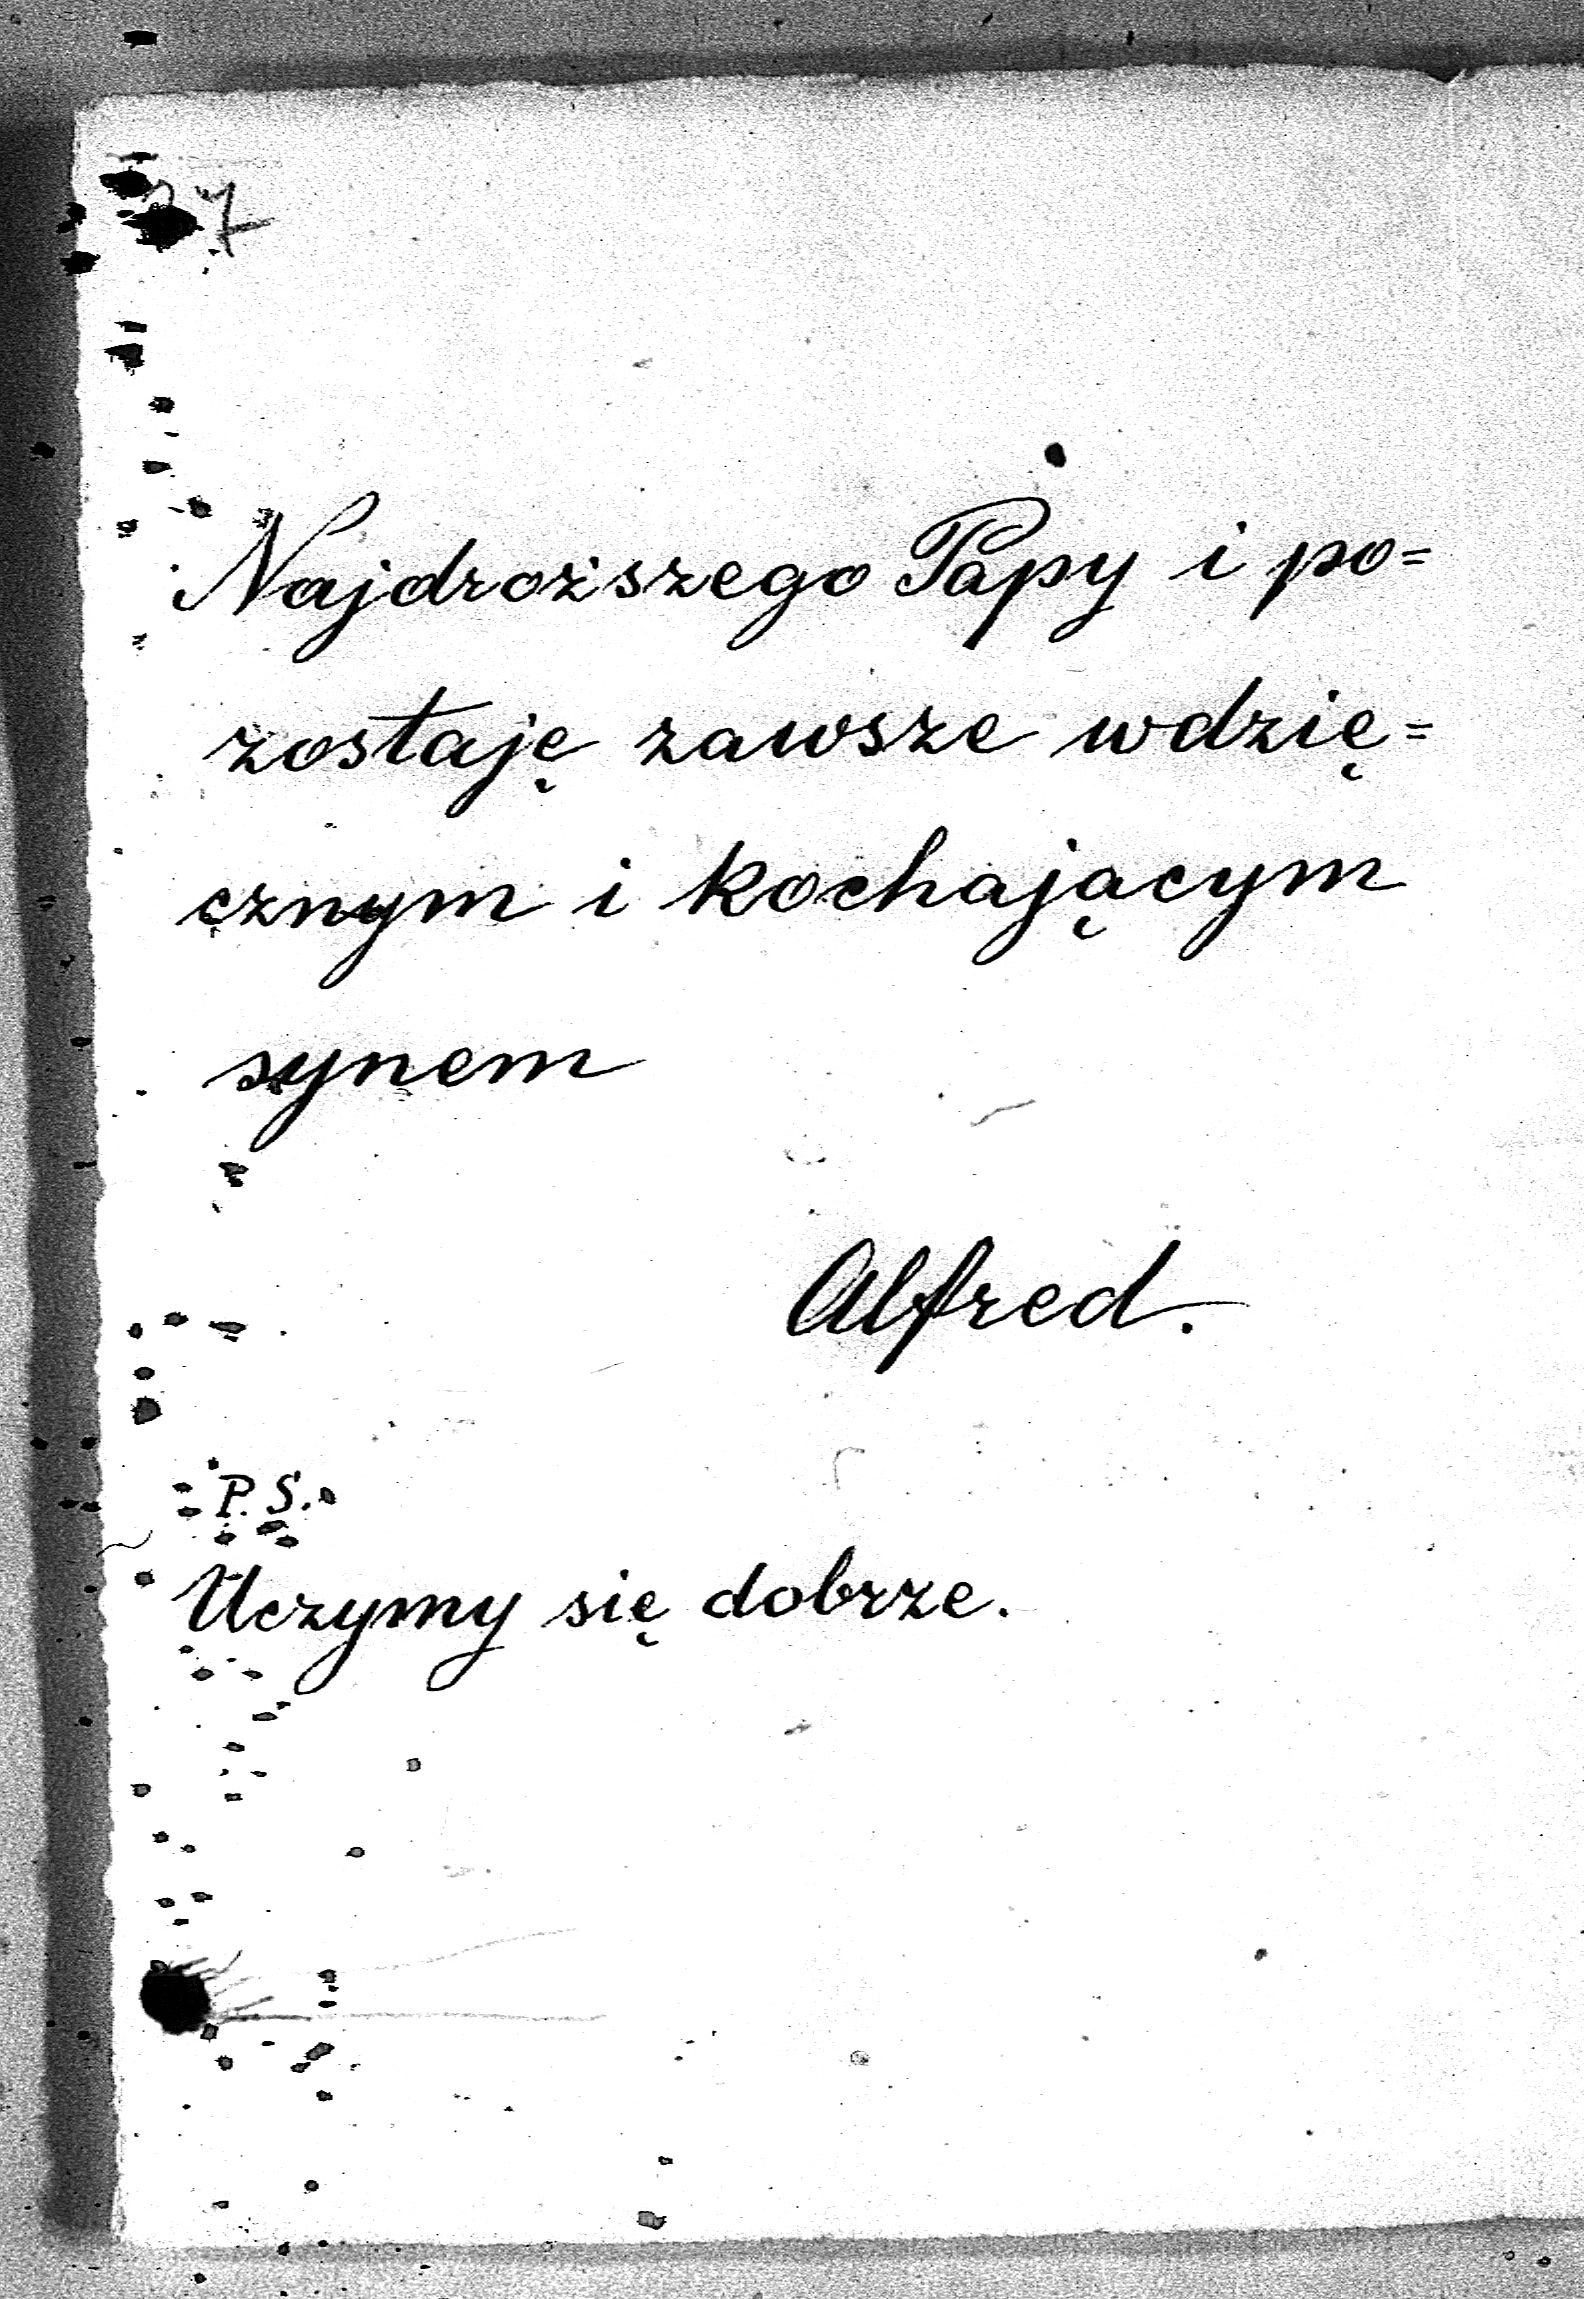 Najdroższego Papy i po=
zostaję zawsze wdzię=
cznym i kochającym
synem
Alfred.
P. S.
Uczymy się dobrze.